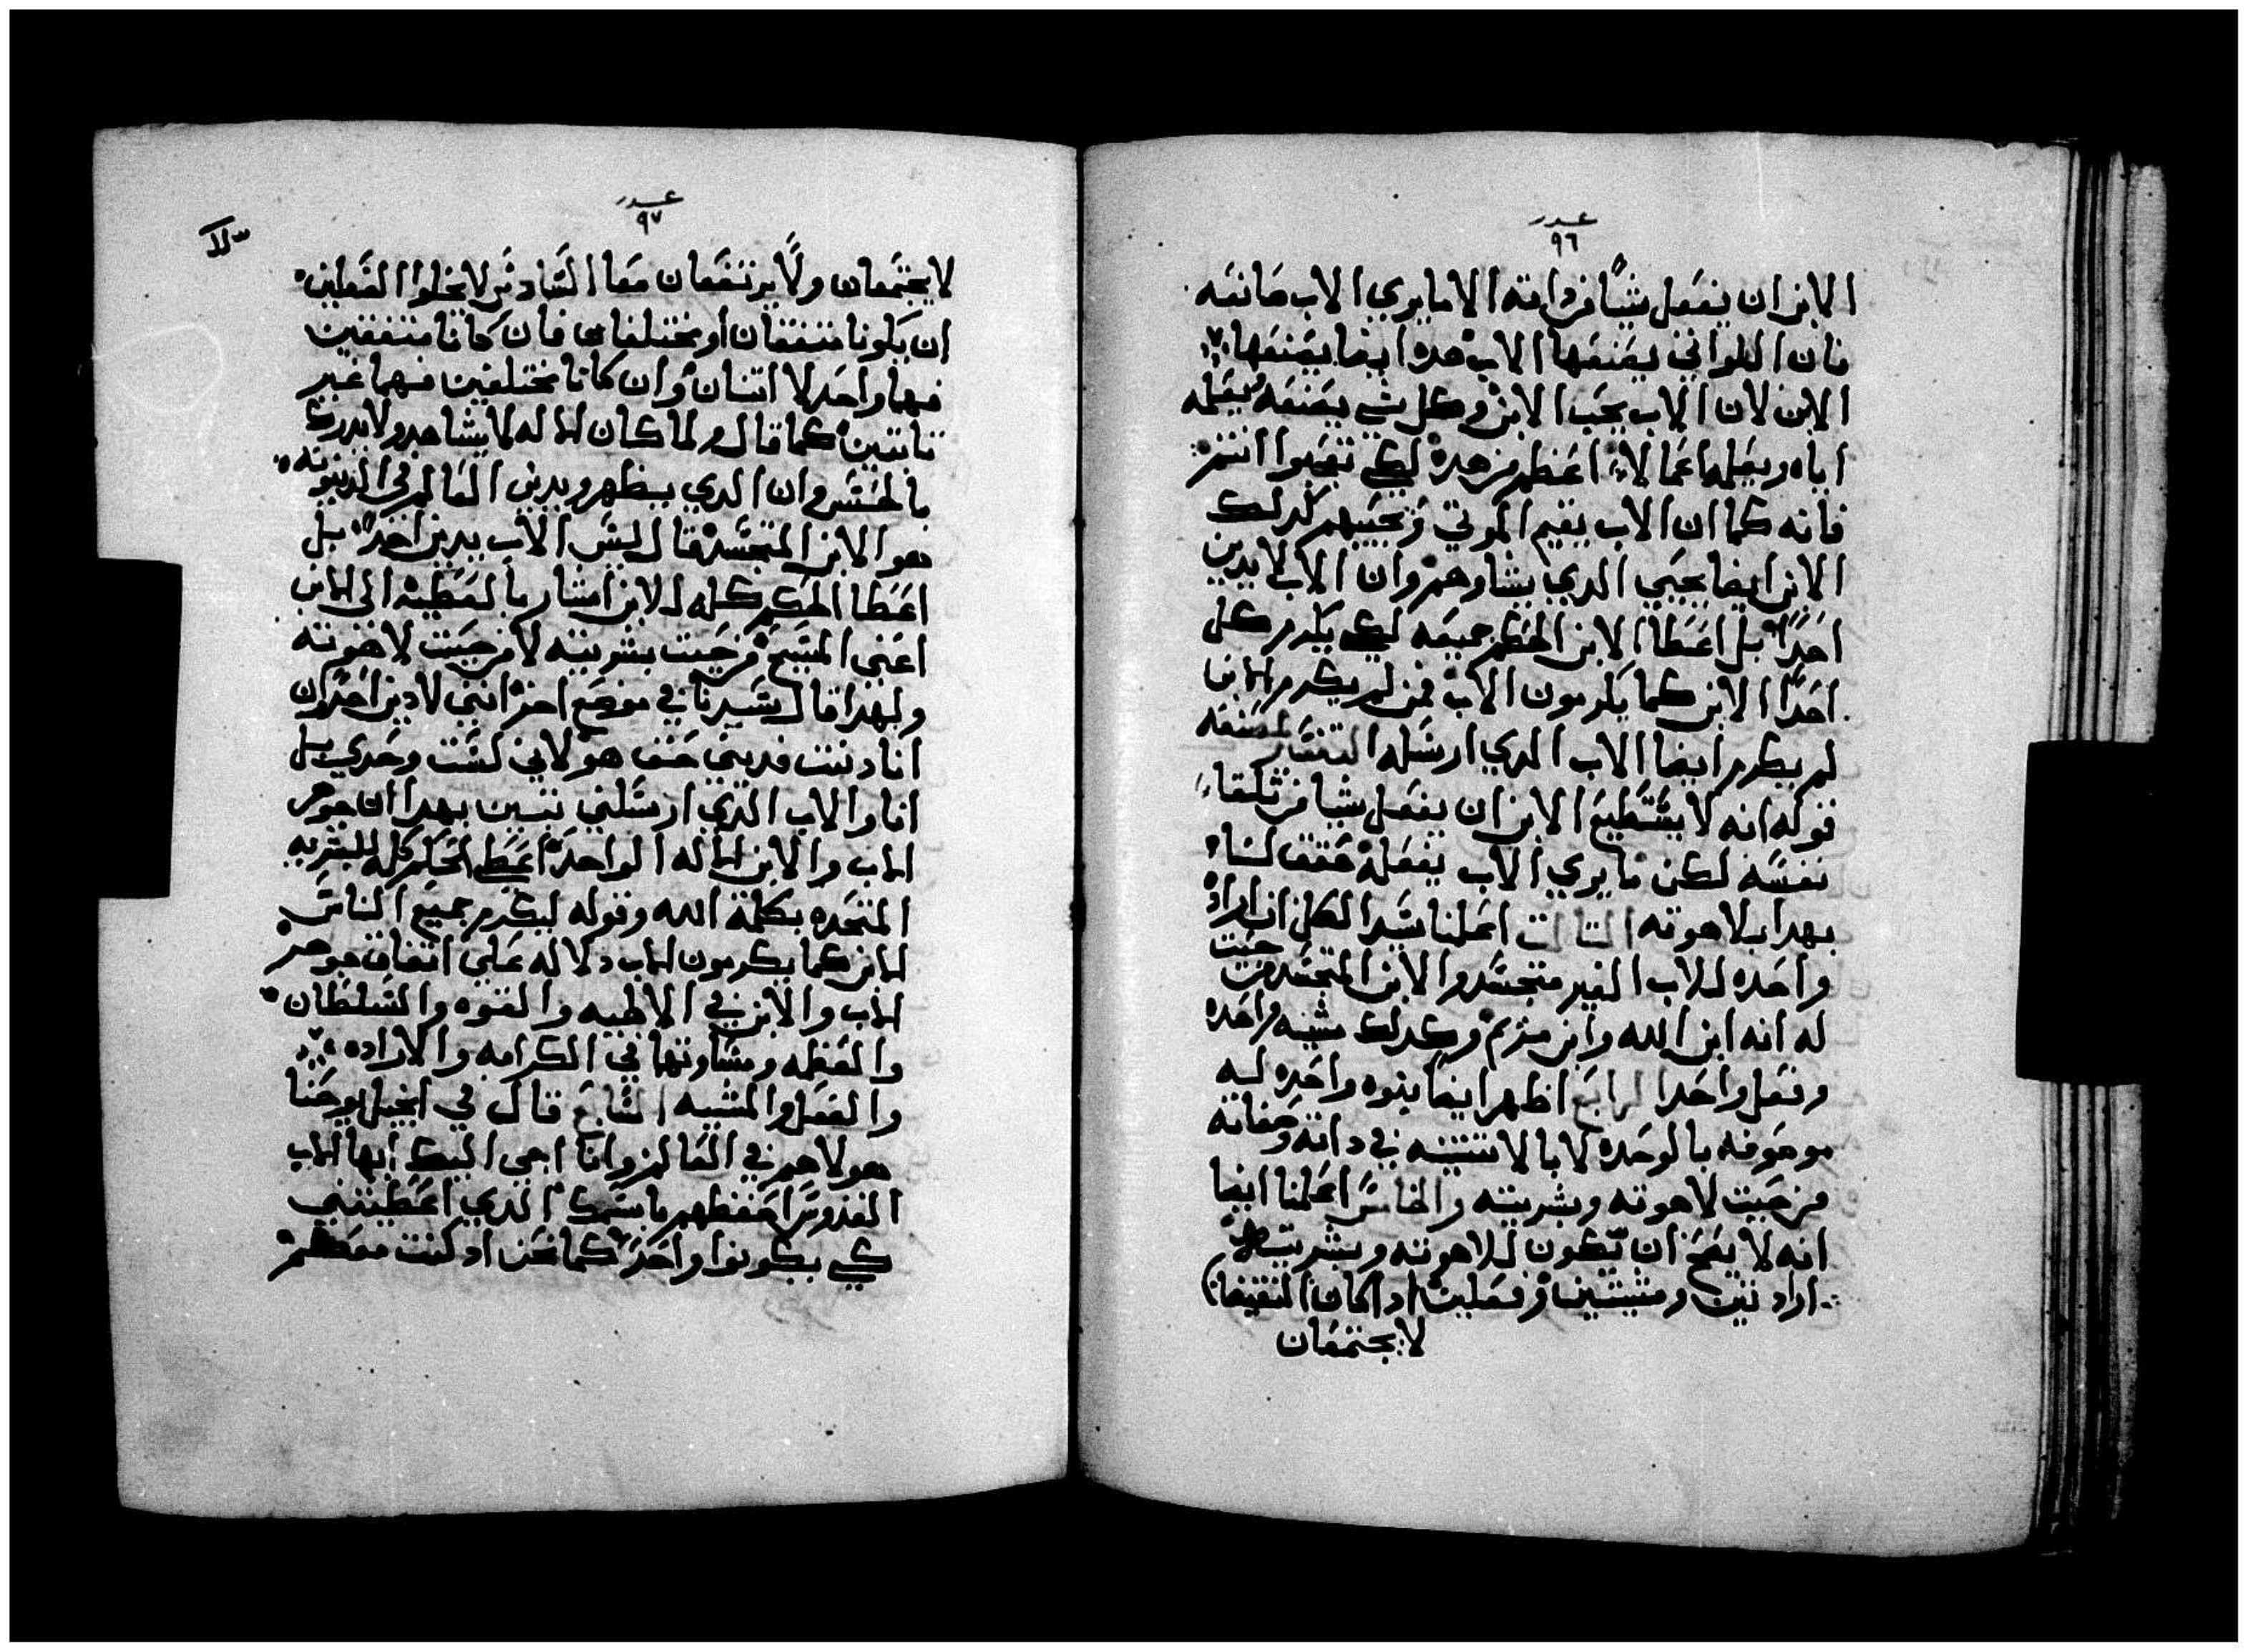 عدد
٩٦
الابن ان يفعل شياً من داته الا ما يري الاب صانعه
فان الدواتي يصنعها الاب هده ايضا يصنعها
الابن لان الاب يحب الابن وكل شي يصنعه يعلمه
اياه ويعلمه اعمالاً اعظم من هده لكي تعجبوا انتم
فانه كما ان الاب يقيم الموتي ويحييهم كدلك
الابن ايضا يحيي الدي يشاوهم وان الاب لا يدين
احداً بل اعطا الابن الحكم جميعه لكي يكرم كل
احداً الابن كما يكرمون الاب فمن لم يكرم الابن
لم يكرم ايضا الاب الدي ارسله التفسير
قوله انه لا يستطيع الابن ان يفعل شيا من تلقا
نفسه لكن ما يري الاب يفعله حقق لنا
بهدا بلاهوته التالت اعلمنا سيد الكل ان اراده
واحده للاب الغير متجسد والابن المتجسد من حيت
له انه ابن الله وابن مريم وكدلك مشيه واحده
وفعل واحدا الرابع اظهر ايضا بنوه واحده ليه
موصوفه بالوحده لا بالاتنينيه في داته وصفاته
من حيت لاهوته وبشريته والخامس اعلمنا ايضا
انه لا يصح ان تكون للاهوته وبشريته
ارادتين ومشيتين وفعلين اد كان النقيضان
لا يجتمعان
عدد
٩٧
لا يجتمعان ولا يرتفعان معا السادس لا يخلوا الفعلين
ان يكونا متفقان او مختلفان فان كانا متفقين
فهما واحد لا اتنان وان كانا مختلفين فهما غير
تابتين كما قال ولما كان الاله لا يشاهد ولا يدرك
بالحس وان الدي يظهر ويدين العالم في الدينونه
هو الابن المتجسد قال ليس الاب يدين احداً بل
اعطا الحكم كله للابن اشار بالعطيه الي الابن
اعني المسيح من حيت بشريته لا من حيت لاهوته
ولهدا قال سيدنا في موضع اخر انني لا دين احدا وان
انا دنت فديني حق هو لاني لست وحدي بل
انا والاب الدي ارسلني تبين بهدا ان جوهر
الاب والابن الاله الواحد اعطي الحكم كله للبشريه
المتحده بكلمة الله وقوله ليكرم جميع الناس
الابن كما يكرمون الاب دلاله علي اتفاق جوهر
الاب والابن في الالهيه والقوه والسلطان
والعظمه ومساوتهما في الكرامه والاراده
والفعل والمشيه السابع قال في انجيل يوحنا
هولا هم في العالم وانا اجي اليك ايها الاب
القدوس احفظهم باسمك الدي اعطيتني
كي يكونوا واحد كما نحن اد كنت معهم